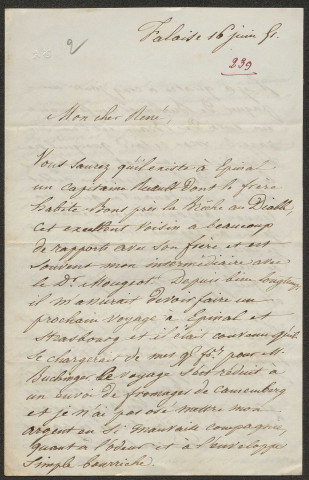 9
Falaise 16 juin 51.
239
Mon cher René,
Vous saurez qu'il existe à Epinal
un Capitaine dont le frère
habite Bons près la Brêche au Diable,
cet excellent voisin a beaucoup
de rapports avec son frère et est
souvent mon intermédiaire avec
le Dr Mougeot. Depuis bien longtemps
il m'assurait devoir faire un
prochain voyage à Epinal et
Strasbourg et il était convenu qu'il
se chargerait de mes qq. fr. pour M.
Buchinger le voyage s'est réduit à
un envoi de fromages de Camemberg
et je n'ai pas osé mettre mon
argent en si mauvaise compagnie,
quant à l'odeur et à l'enveloppe
simple bourriche.